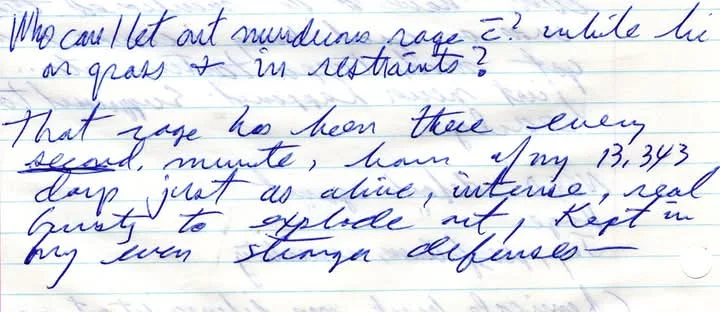 Who can I let out murderous rage = ? while lie
on grass & in restraints?
That rage has been there every
second, minute, hour of my 13,343
days just as alive, intense, real
bursting to explode out, Kept in
by even stronger defenses—